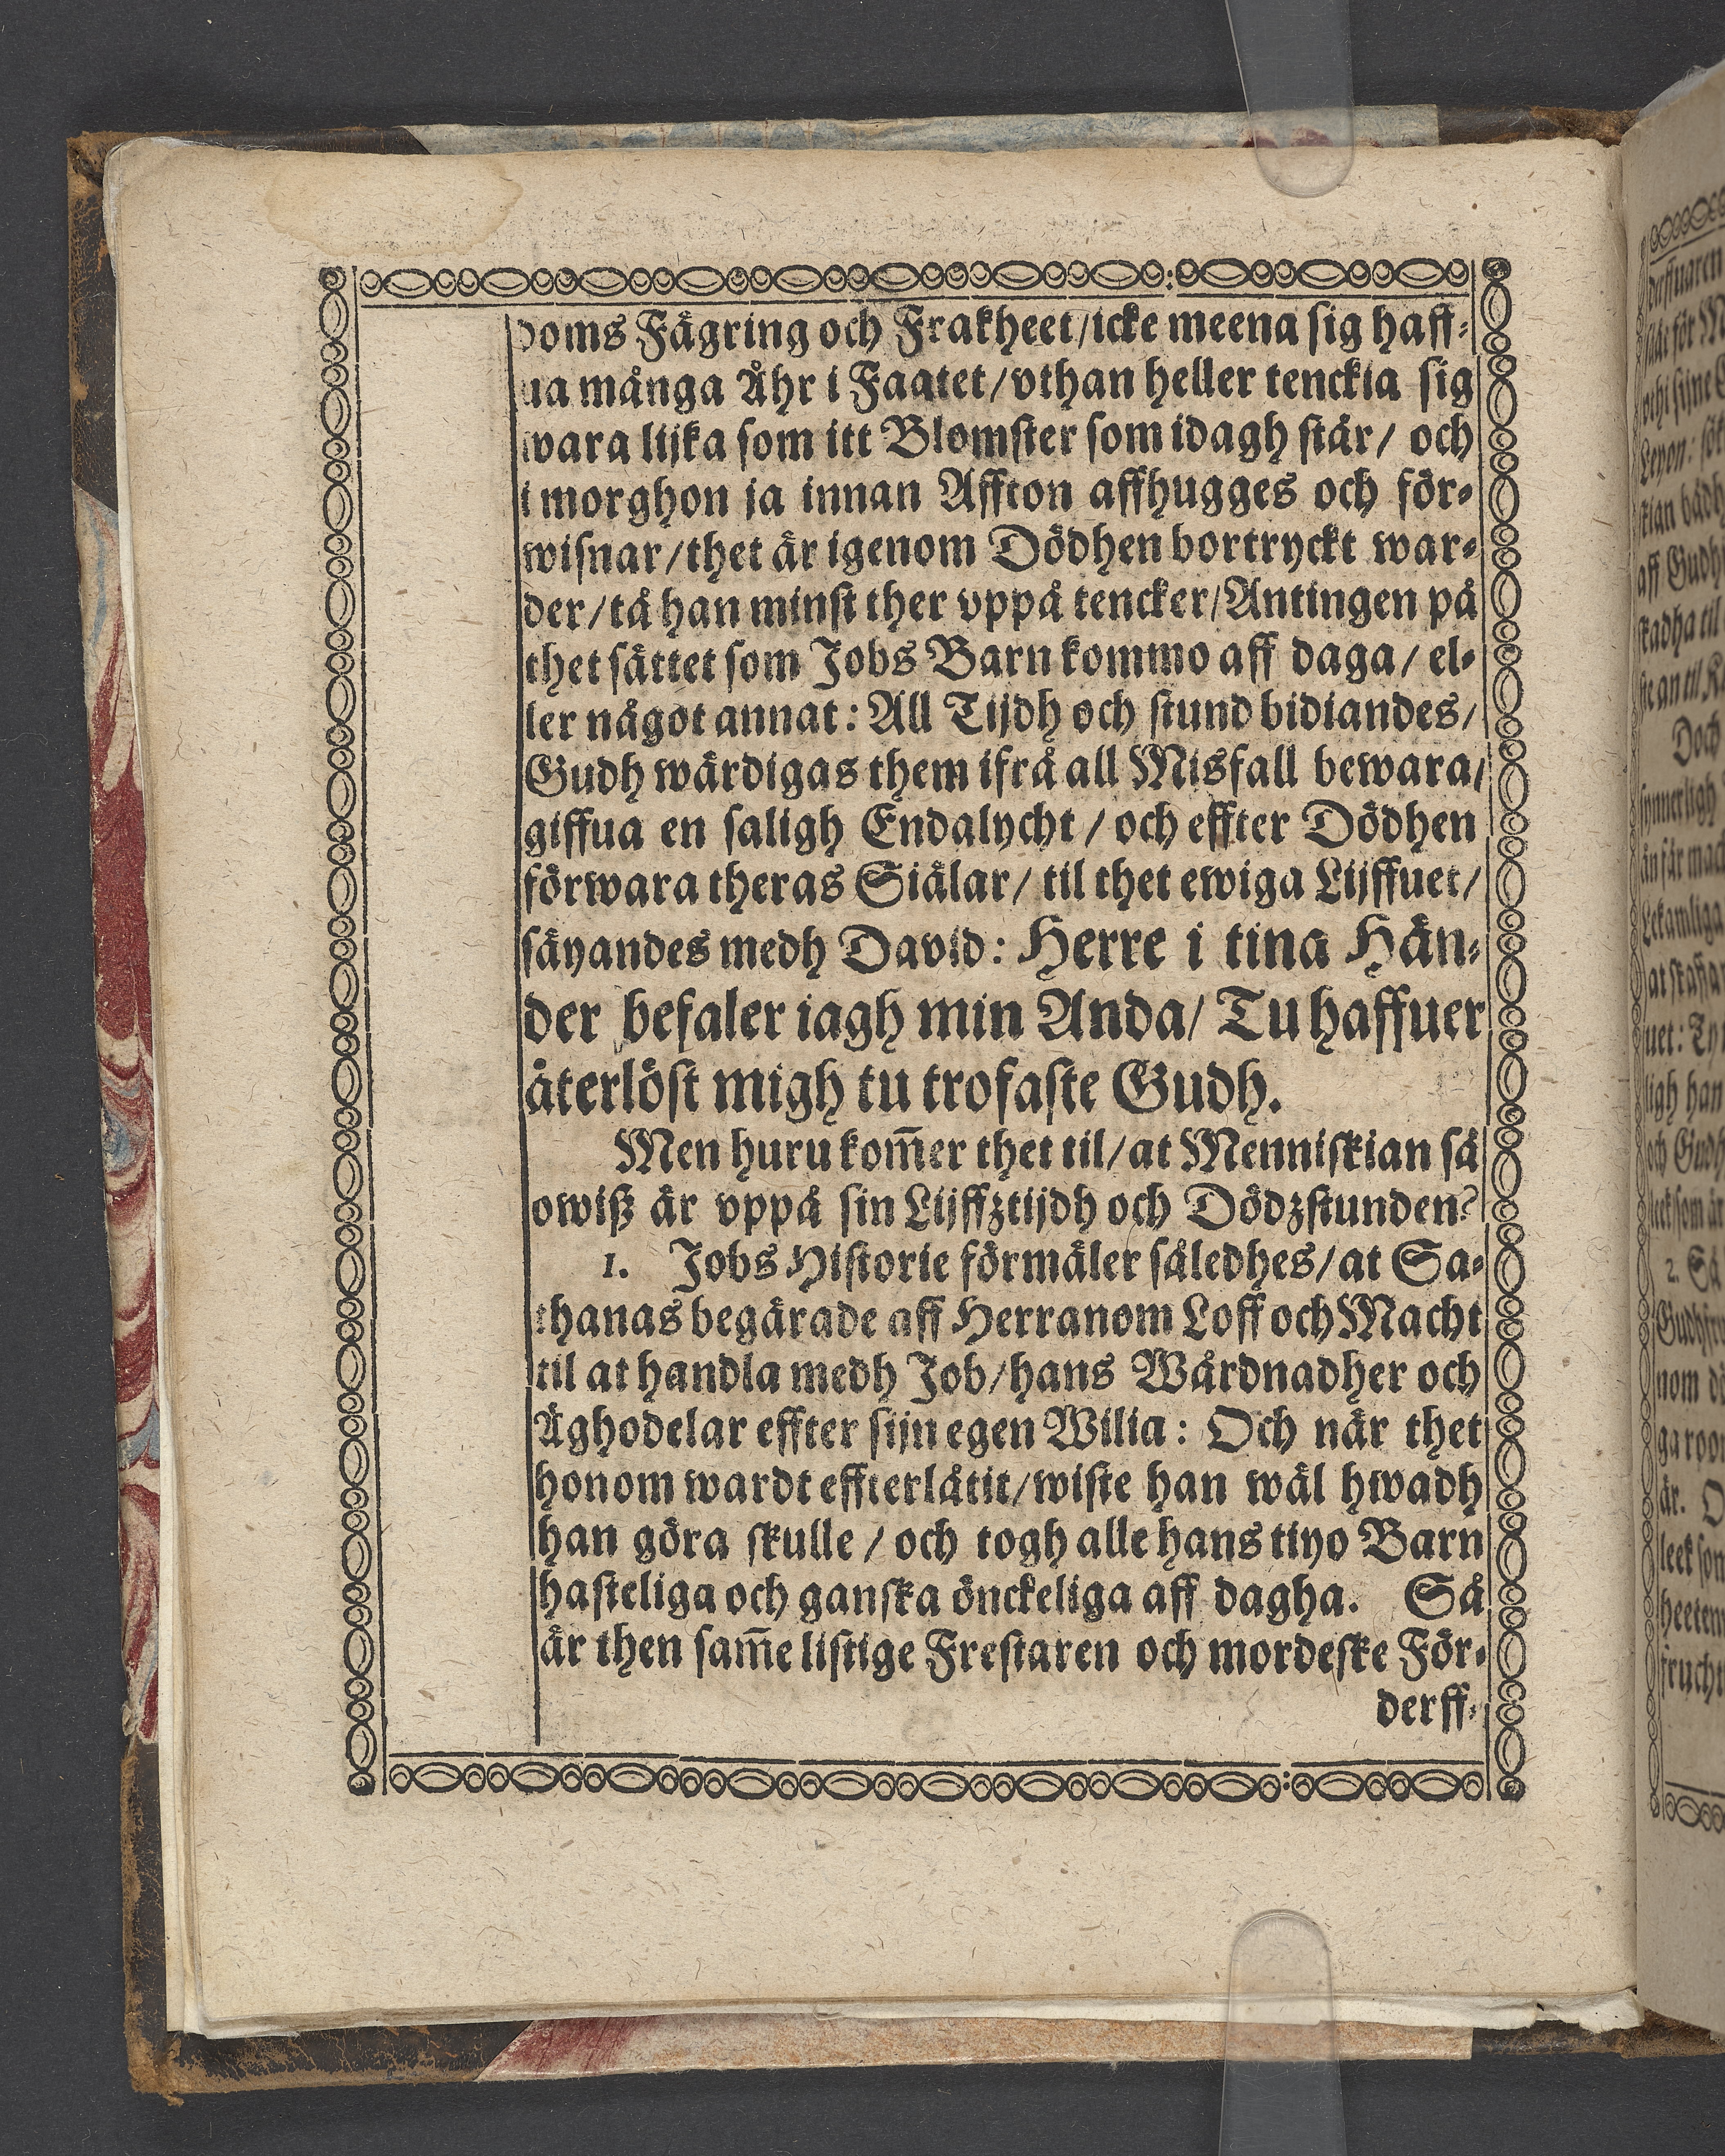 doms Fägring och Frakheet/icke meena sig haff-
ua många Åhr i Faatet/vthan heller tenckia sig
wara lijka som itt Blomster som idagh står/ och
i morghon ja innan Affton affhugges och för-
wisnar/thet är igenom Dödhen bortryckt war-
der/tå han minst ther vppå tencker/Antingen på
thet sättet som Jobs Barn kommo aff daga/ el-
ler något annat: All Tijdh och stund bidiandes/
Gudh wärdigas them ifrå all Misfall bewara/
giffua en saligh Endalycht/ och effter Dödhen
förwara theras Siälar/ til thet ewiga Lijffuet/
säyandes medh David: Herre i tina Hän-
der befaler iagh min Anda/ Tu haffuer
återlöst migh tu trofaste Gudh.
Men huru kom̅er thet til/at Menniskian så
owiß är vppå sin Lijffztijdh och Dödzstunden?
1. Jobs Historie förmäler således/at Sa-
thanas begärade aff Herranom Loff och Macht
til at handla medh Job/hans Wårdnadher och
Äghodelar effter sijn egen Wilia: Och når thet
honom wardt effterlåtit/wiste han wäl hwadh
han göra skulle/ och togh alle hans tiyo Barn
hasteliga och ganska önckeliga aff dagha. Så
är then sam̅e listige Frestaren och mordeske För-
derff-